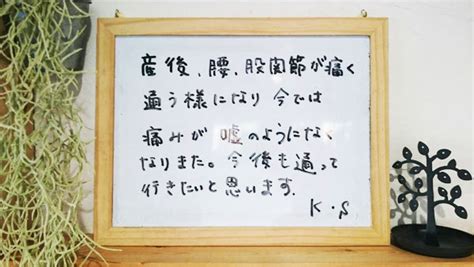 産後、腰、股関節が痛く
通う様になり今では
痛みが嘘のようになく
なりまた。今後も通って
行きたいと思います.
K.S